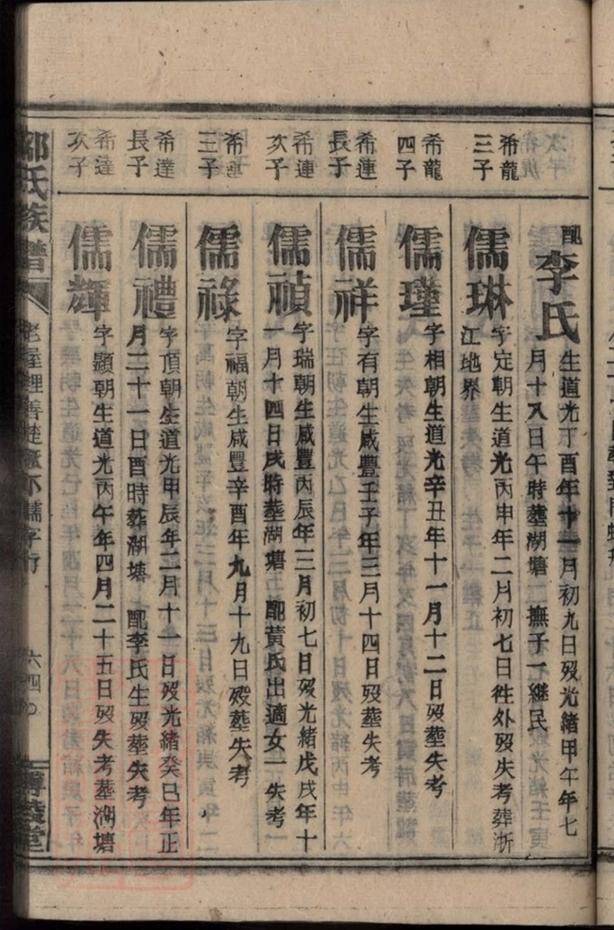 配李氏
生道光丁酉年十一月初九日歿光緒甲午年七
月十八日午時塟湖塘 撫子一継民
希龍
三子
儒琳
字定朝生道光丙申年二月初七日徃外歿失考葬浙
江地界
希龍
四子
儒瑾
字相朝生道光辛丑年十一月十二日歿塟失考
希連
長子
儒祥
字有朝生咸豐壬子年三月十四日歿塟失考
希連
次子
儒禎
字瑞朝生咸豐丙辰年三月初七日歿光緒戊戌年十
一月十四日戌時塟湖塘 配黃氏出適女一失考
希連
三子
儒祿
字福朝生咸豐辛酉年九月十九日歿塟失考
希達
長子
儒禮
字頂朝生道光甲辰年二月十一日歿光緒癸巳年正
月二十一日酉時葬湖塘 配李氏生歿塟失考
希達
次子
儒輝
字顯朝生道光丙午年四月二十五日歿失考塟湖塘
氏族譜
老屋裡善廷
儒字行
六四
堂